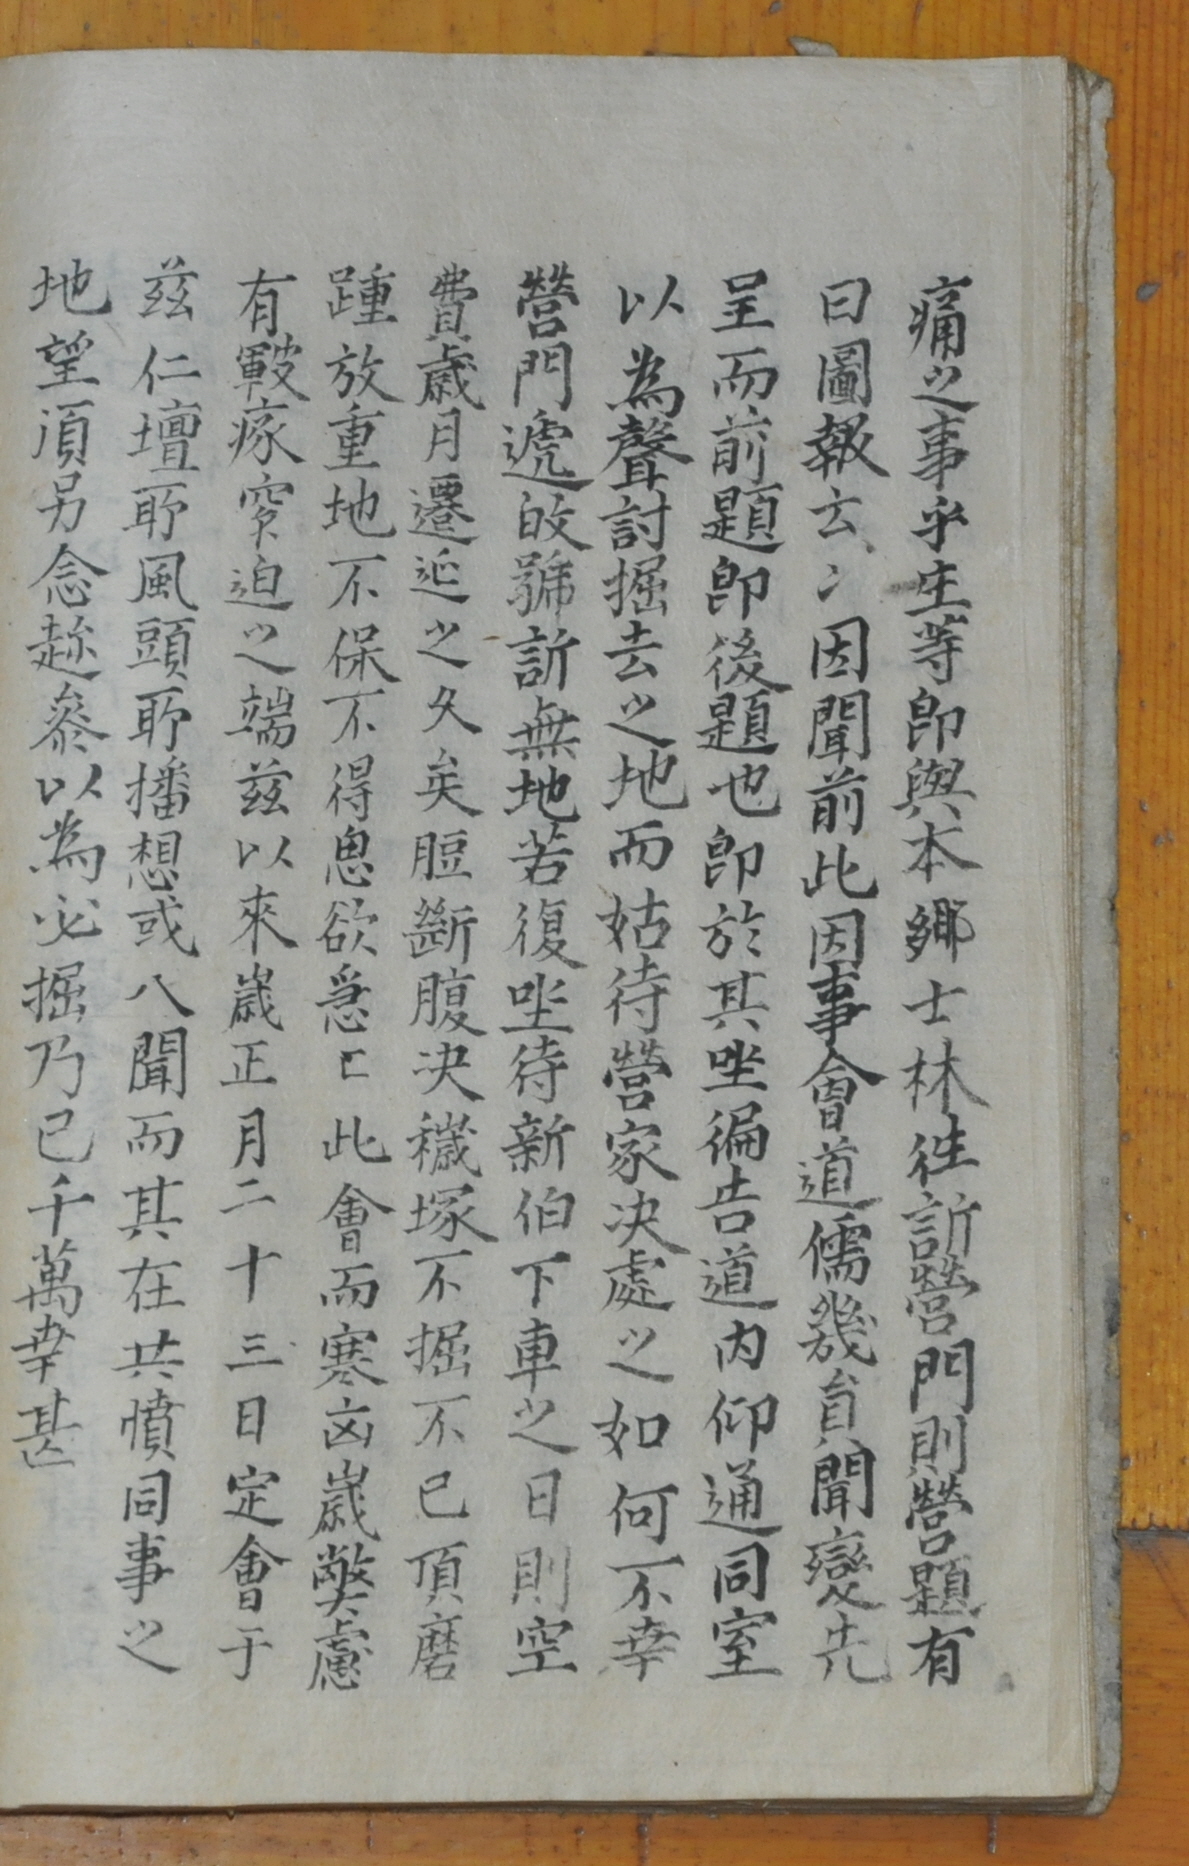 痛之事乎生等即與本鄉士林徃訢營門則營題有
曰圖報云〻因聞前此因事會道儒幾員聞變先
呈而前題即後題也即於其坐徧告道内仰通同室
以為聲討掘去之地而姑待營家决處之如何不幸
營門遞改號訢無地若復坐待新伯下車之日則空
費歲月遷延之久矣脰斷腹决穢塚不掘不已頂磨
踵放重地不保不得思欲急匸此會而寒凶歲弊慮
有皸瘃窘迫之端玆以來歲正月二十三日定會于
玆仁壇耶風頭耶播想或入聞而其在共憤同事之
地望須另念趂參以為必掘乃已千萬幸甚